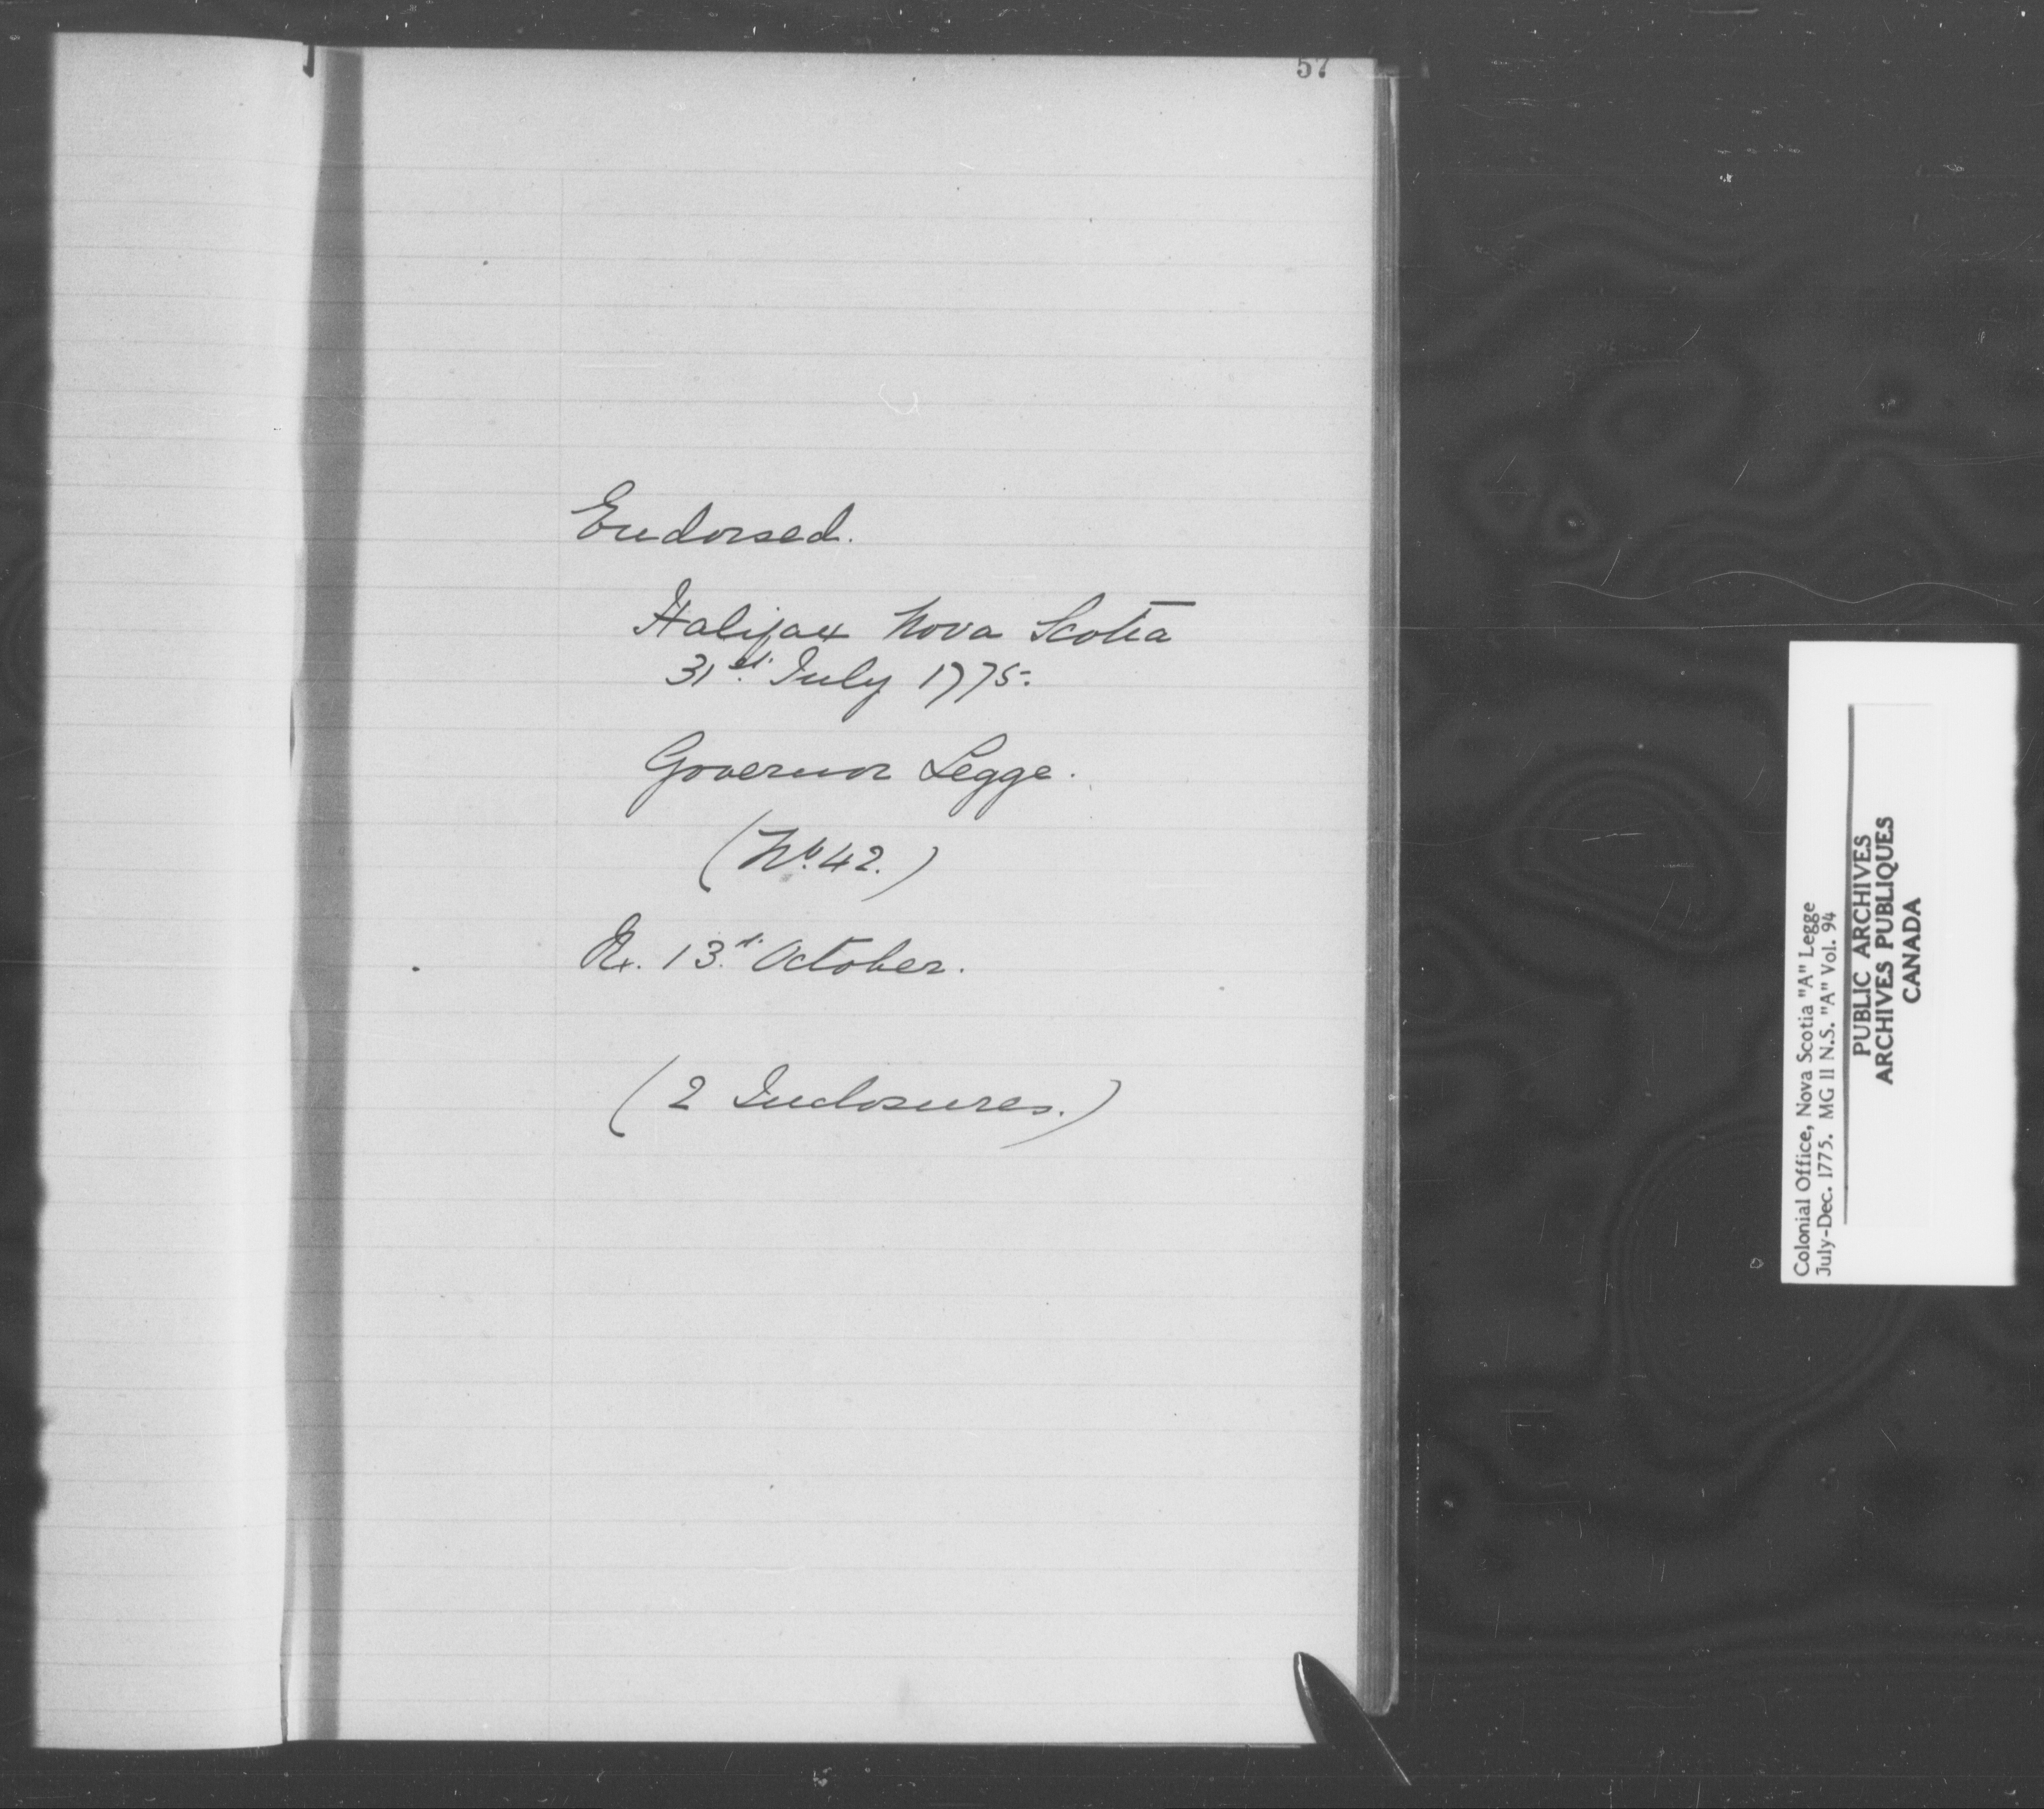 57
Endorsed.
Halifax Nova Scotia
31st July 1775.
Governor Legge.
(No. 42.)
Rx. 13th October.
(2 Inclosures.)
Colonial Office, Nova Scotia "A" Legge
July-Dec. 1775. MG 11 N.S. "A" Vol. 94
PUBLIC ARCHIVES
ARCHIVES PUBLIQUES
CANADA